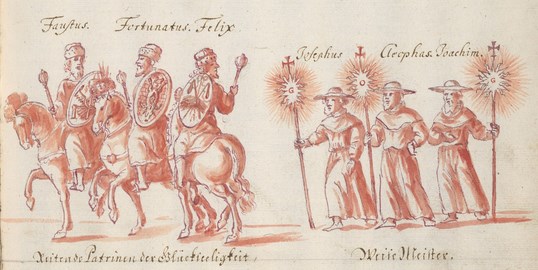 Faustus. Fortunatus. Felix
Josephus Cleophas. Joachim.
Reitende Patrinen der Glückseeligkeit
Weise Meister.